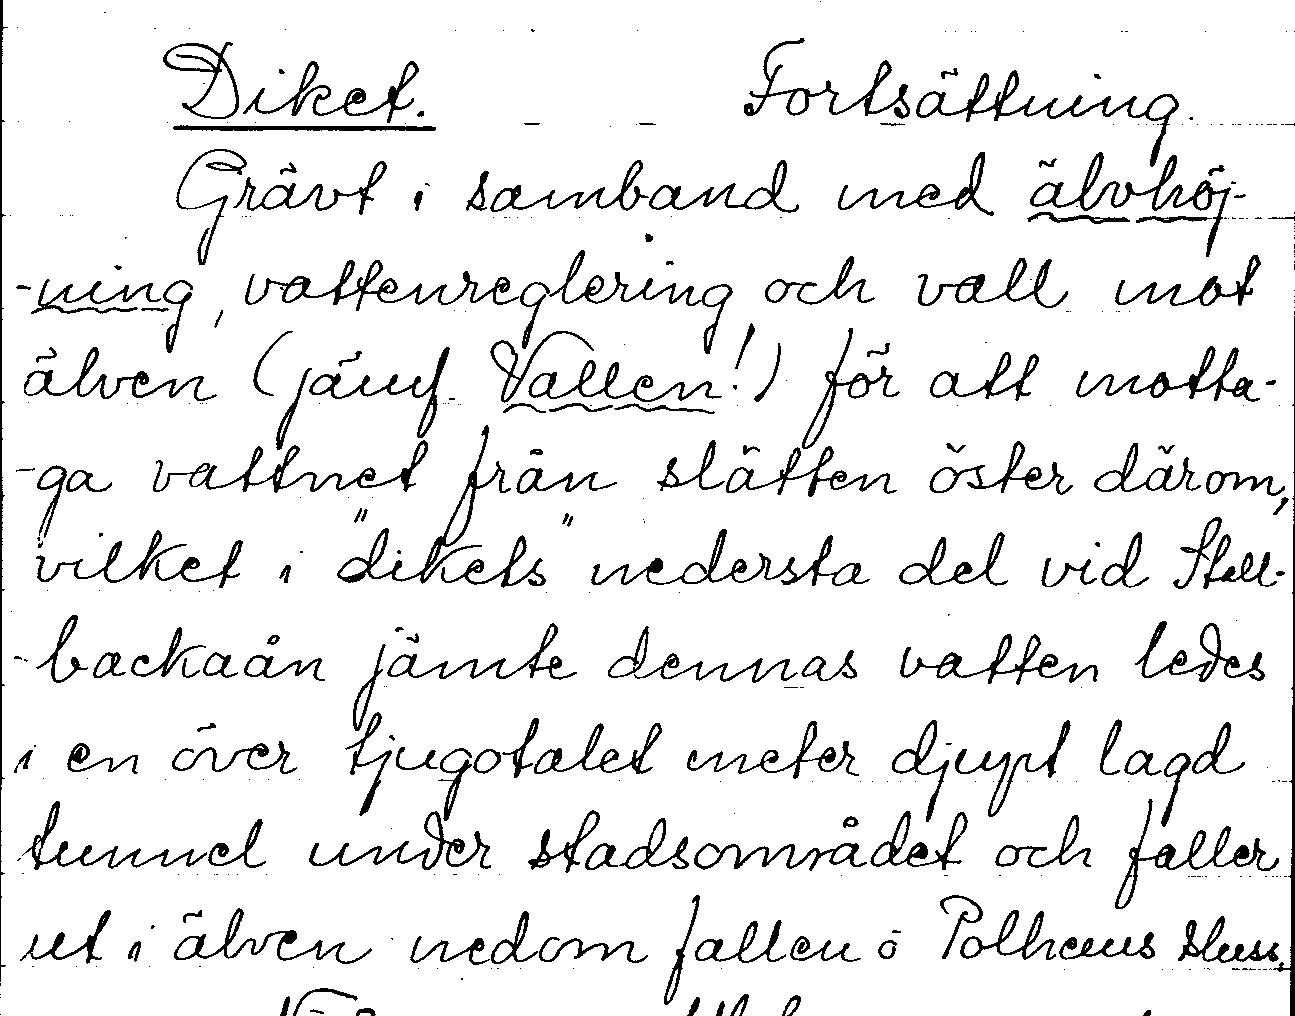 Diket. Fortsättning.
Grävt i samband med älvhöj-
-ning, vattenreglering och vall mot
älven (jämf. Vallen!) för att motta-
-ga vattnet från slätten öster därom,
vilket i "dikets" nedersta del vid Stall-
-backaån jämte dennas vatten ledes
i en över tjugotalet meter djupt lagd
tunnel under stadsområdet och faller
ut i älven nedom fallen o Polhems sluss.